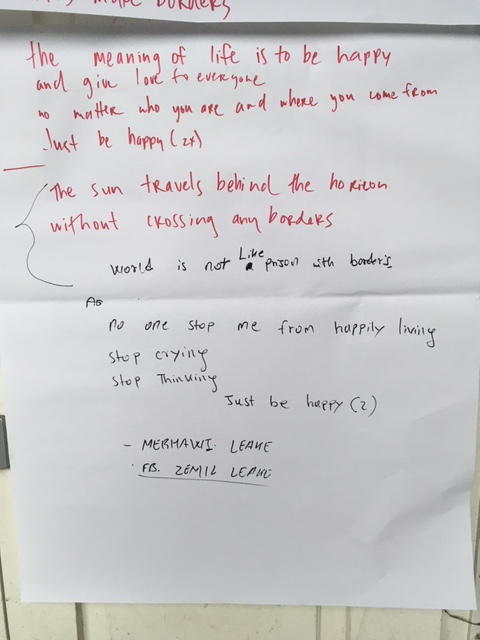 made borders
the meaning of life is to be happy
and give love to everyone
no matter who you are and where you come from
Just be happy (2x)
The sun travels behind the horizon
without crossing any borders
world is not Like prison with borders
As
no one stop me from happily living
stop crying
stop Thinking
Just be happy (2)
- MERHAWI. LEAKE
FB. ZEMIL LEAKE